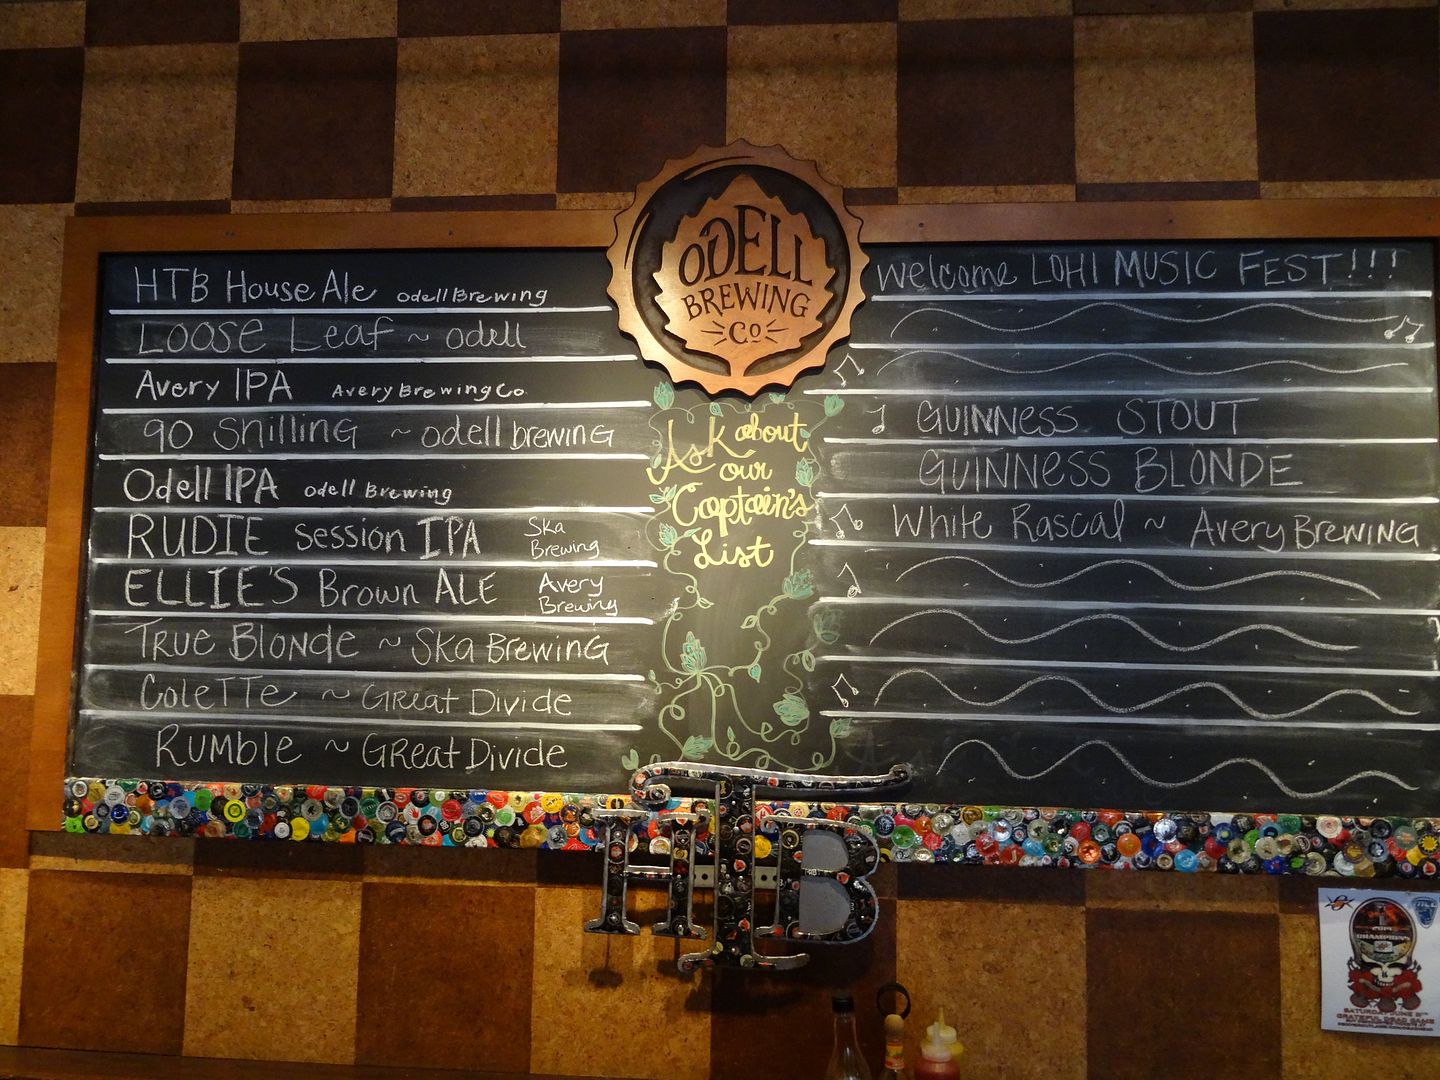 HTB House Ale odell Brewing
LOOSE Leaf ~ odell
Avery IPA Avery Brewing Co.
90 Shilling ~ odell brewing
Odell IPA odell Brewing
RUDIE session IPA Ska Brewing
ELLIE'S Brown ALE Avery Brewing
TRUE BLONDE ~ SKA BREWING
COLETTE ~ GREAT DIVIDE
RUMBLE ~ GREAT DIVIDE
ODELL
BREWING
Co
Ask about
our
Captain's
List
Welcome LOHI MUSIC FEST!!!
GUINNESS STOUT
GUINNESS BLONDE
White Rascal ~ Avery BREWING
HTB
CHAMPIONS